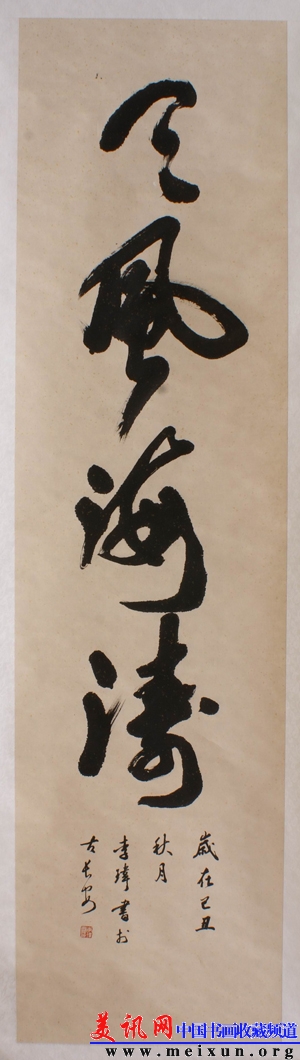 天风海涛
歲在己丑
秋月
李瑋書於
古長安
美讯网 中国书画收藏频道
www.meixun.org